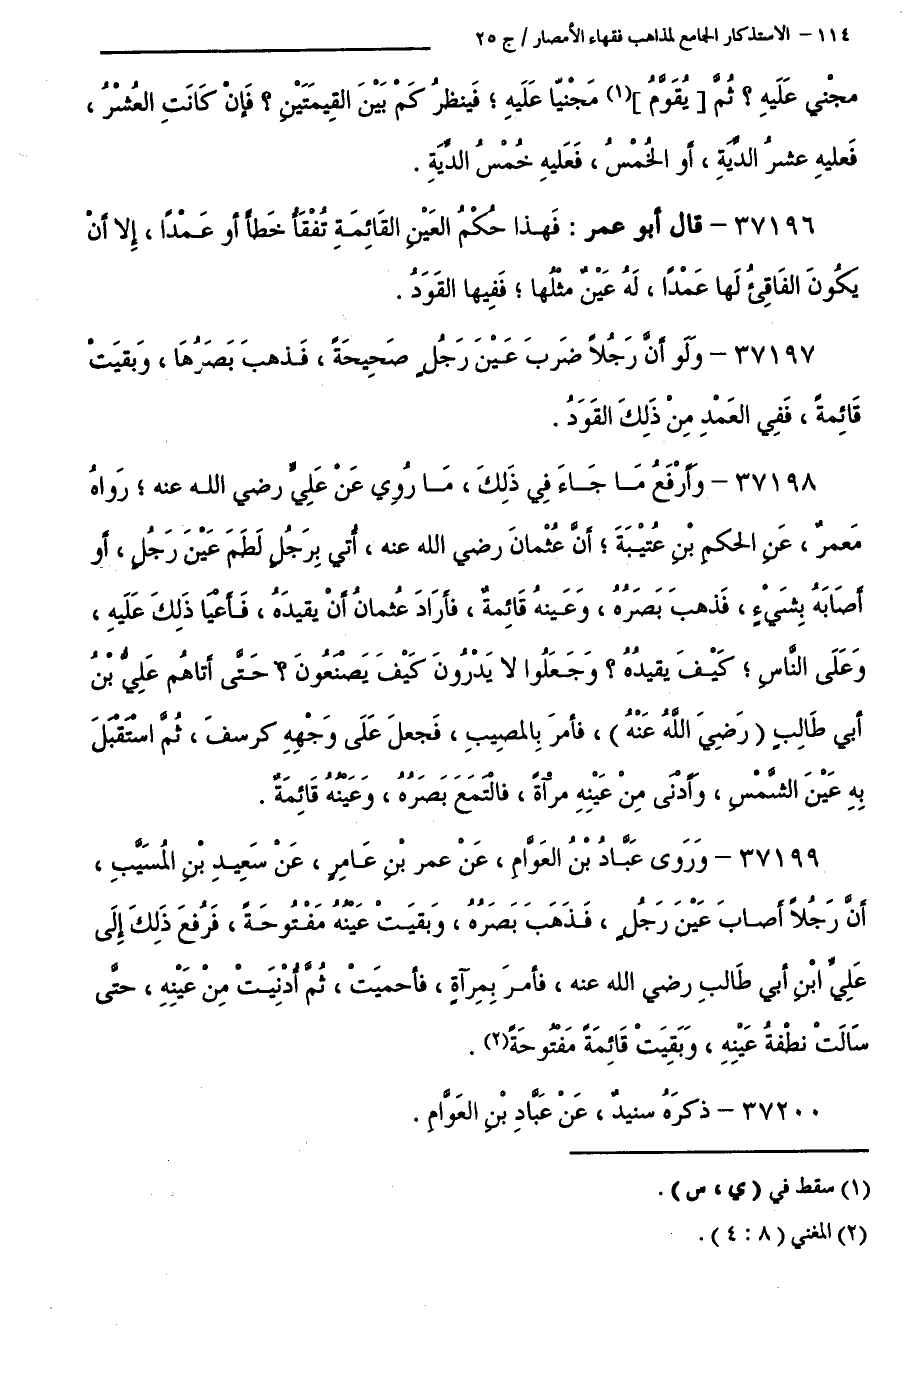 ١١٤ – الاستذكار الجامع لمذاهب فقهاء الأمصار / ج ٢٥
مجْني عَلَيه ؟ ثُمَّ [ يُقَوَّمُ ](١) مَجْنيّا عَلَيهِ ؛ فَينظرُ كَمْ بَيْنَ القِيمَتَيْنِ ؟ فَإِنْ كَانَتِ العُشْرُ ،
فَعليهِ عشرُ الدِّيَةِ ، أو الخُمْسُ ، فَعَليهِ خُمْسُ الدِّيَةِ .
٣٧١٩٦ – قال أبو عمر : فَهـذا حكْمُ العَيْنِ القَائِمَـةِ تُفْقَأُ خَطأً أو عَـمْدًا ، إِلا أنْ
يكُونَ الفَاقِئُ لَها عَمْدًا ، لَهُ عَيْنٌ مثْلُها ؛ فَفِيها القَوَدُ .
٣٧١٩٧ – ولَو أنَّ رَجُلاً ضَربَ عَـيْنَ رَجُلٍ صَحِيحَةً ، فَـذهبَ بَصَرُهَا ، وبَقيَتْ
قَائِمةً ، فَفِي العَمْدِ مِنْ ذَلِكَ القَوَدُ .
٣٧١٩٨ – وَأَرْفَعُ مَـا جَـاءَ فِي ذَلِكَ ، مَـا رُوِي عَنْ عَلِيٍّ رضي اللـه عنه ؛ رَواهُ
مَعمرٌ ، عَنِ الحَكمِ بْنِ عُتيْبَةَ ؛ أنَّ عُثْمانَ رضي الله عنه ، أُتي برَجُلٍ لَطَمَ عَيْنَ رَجُلٍ ، أو
أصَابَهُ بِشَيْءٍ ، فَذهبَ بَصَرُهُ ، وَعَـينهُ قَائِمةٌ ، فأرَادَ عُثمانُ أنْ يقيدَهُ ، فَـأعْيَا ذَلِكَ عَلَيهِ ،
وَعَلَى النَّاسِ ؛ كَيْـفَ يقيدُهُ ؟ وَجَـعَلُوا لا يَدْرُونَ كَيْفَ يَصنَعُونَ ؟ حَـتَّى أتاهُم عَلِيُّ بْنُ
أبي طَالِبٍ ( رَضِيَ اللَّهُ عَنْهُ ) ، فأمرَ بِالمصيبِ ، فَجعلَ عَلَى وَجْههِ كرسفَ ، ثُمَّ اسْتَقْبَلَ
بِهِ عَيْنَ الشَّمْسِ ، وَأَدْنَى مِنْ عَيْنِهِ مرآةً ، فالْتَمَعَ بَصَرُهُ ، وعَيْنُهُ قَائِمَةٌ .
٣٧١٩٩ – وَرَوَى عبَّادُ بْنُ العَوَّامِ ، عَنْ عمر بْنِ عَـامِرٍ ، عَنْ سَعِيـدِ بْنِ المُسَيَّبِ ،
أنَّ رَجُلاً أصـابَ عَيْنَ رَجُلٍ ، فَـذَهَبَ بَصَرُهُ ، وبَقيَـتْ عَيْنُهُ مَفْـتُوحَـةً ، فَرُفعَ ذَلِكَ إِلَى
عَلِيٍّ ابْنِ أبي طَالبٍ رضي الله عنه ، فأمـرَ بِمِرآةٍ ، فأحميَتْ ، ثُمَّ أُدْنِيَـتْ مِنْ عَيْنِهِ ، حتَّى
سَالَتْ نطْفةُ عَيْنِهِ ، وبَقِيَتْ قَائِمَةً مَفْتُوحَةً(٢) .
٣٧٢٠٠ – ذكرَهُ سنيدٌ ، عَنْ عَبَّادِ بْنِ العَوَّامِ .
(١) سقط في ( ي ، س ) .
(٢) المغني ( ٨ : ٤ ) .